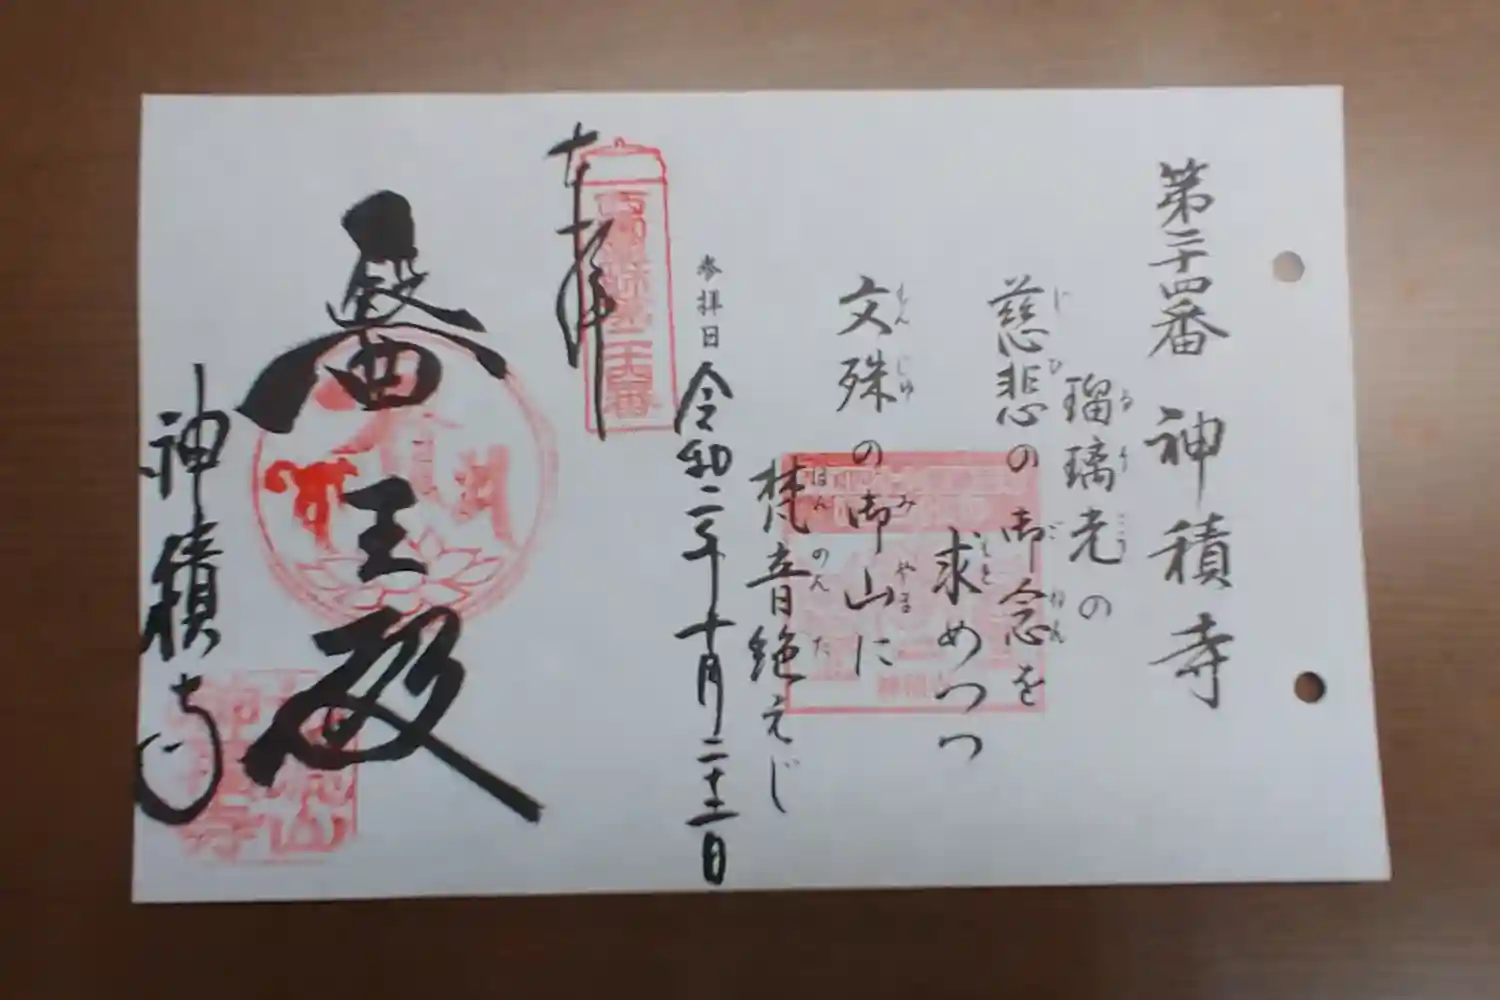 第二十四番 神積寺
瑠璃光の
慈悲の御念を
求めつつ
文殊の御山に
梵音絶えじ
参拝日 令和二年十月二十二日
奉拝
醫王殿
神積寺